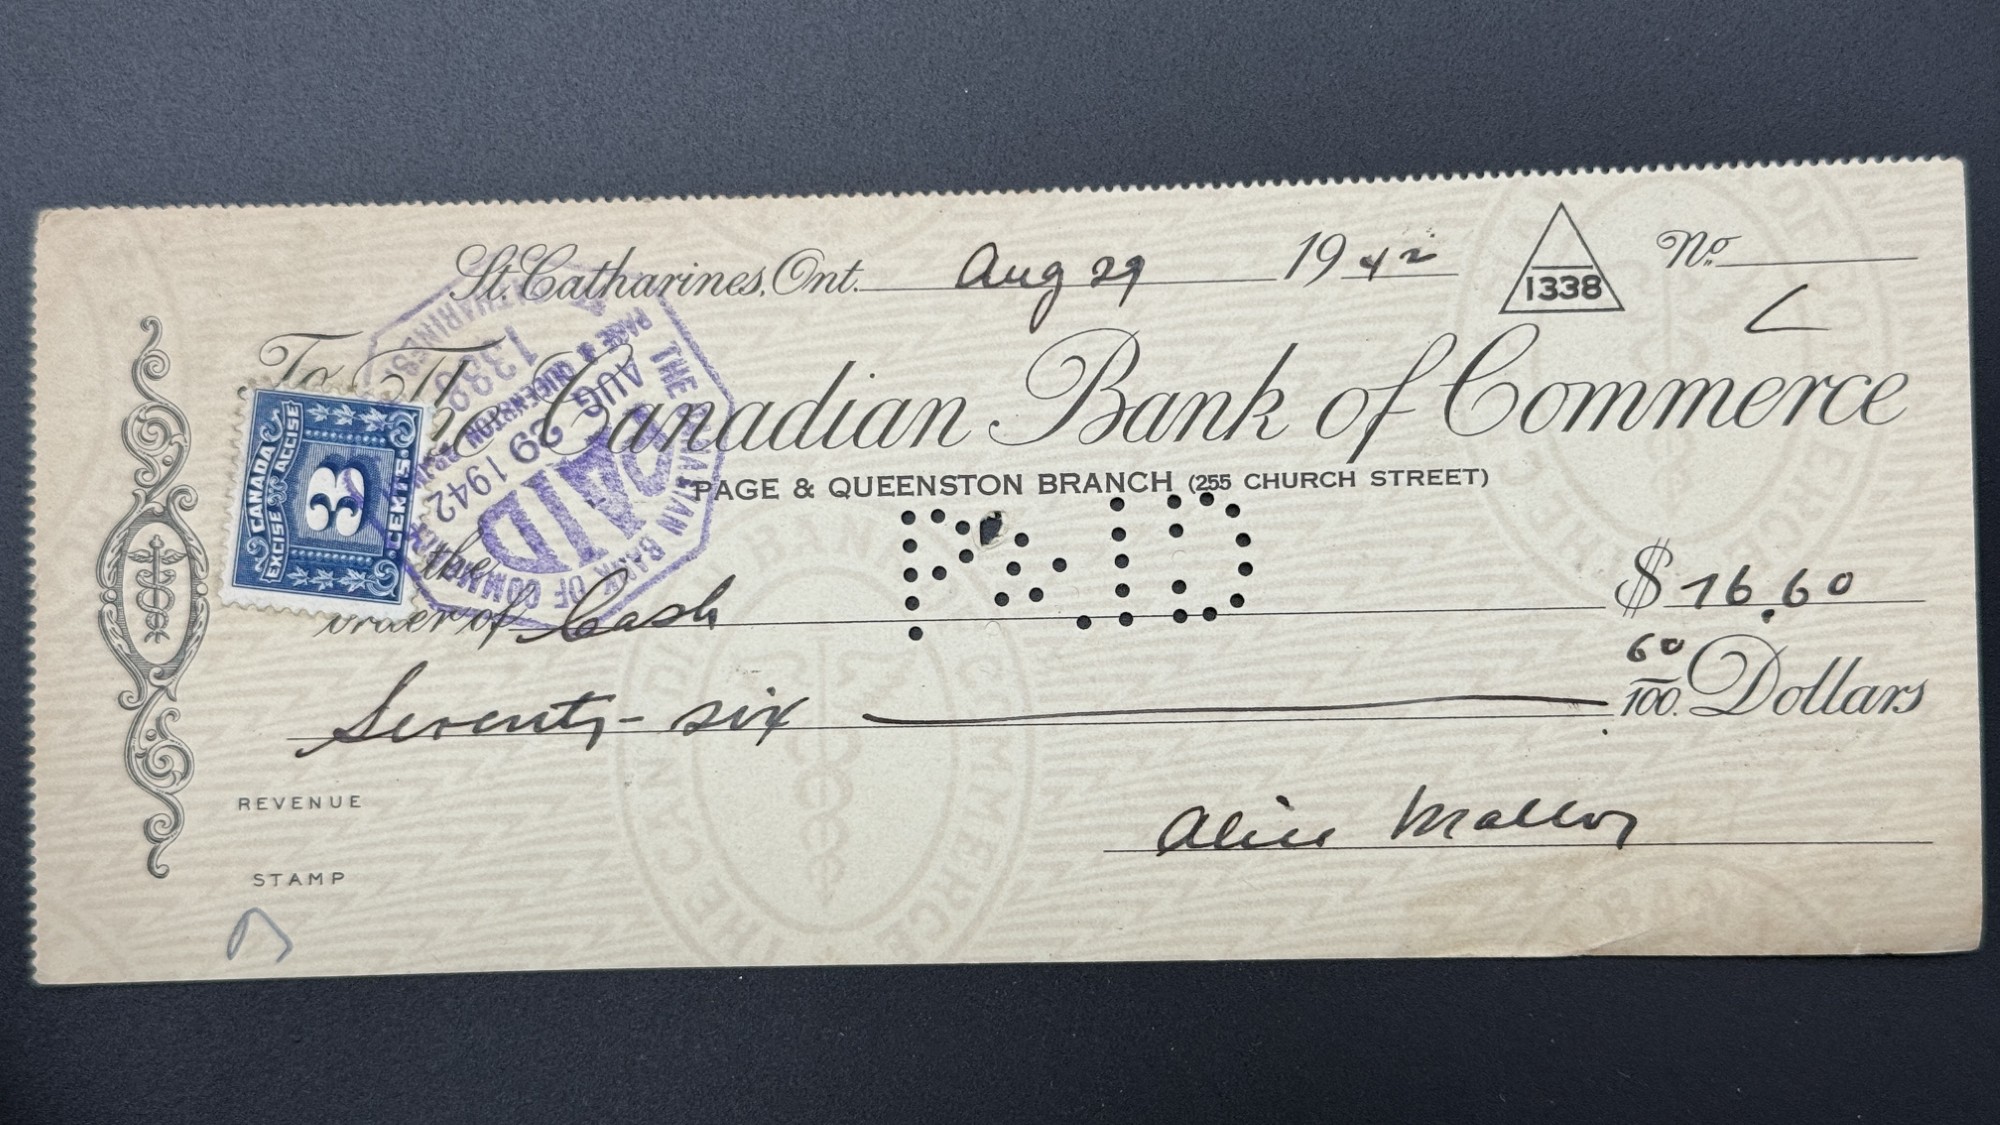 St. Catharines, Ont. Aug 29 1942
No.
1338
To The Canadian Bank of Commerce
PAGE & QUEENSTON BRANCH (255 CHURCH STREET)
CANADA
EXCISE ACCISE
3
CENTS
THE CANADIAN BANK OF COMMERCE
PAGE & QUEENSTON
AUG 29 1942
PAID
1338
ST. CATHARINES
PAID
the
order of Cash $76.60
Seventy-six 60/100 Dollars
REVENUE
STAMP
Alice Malloy